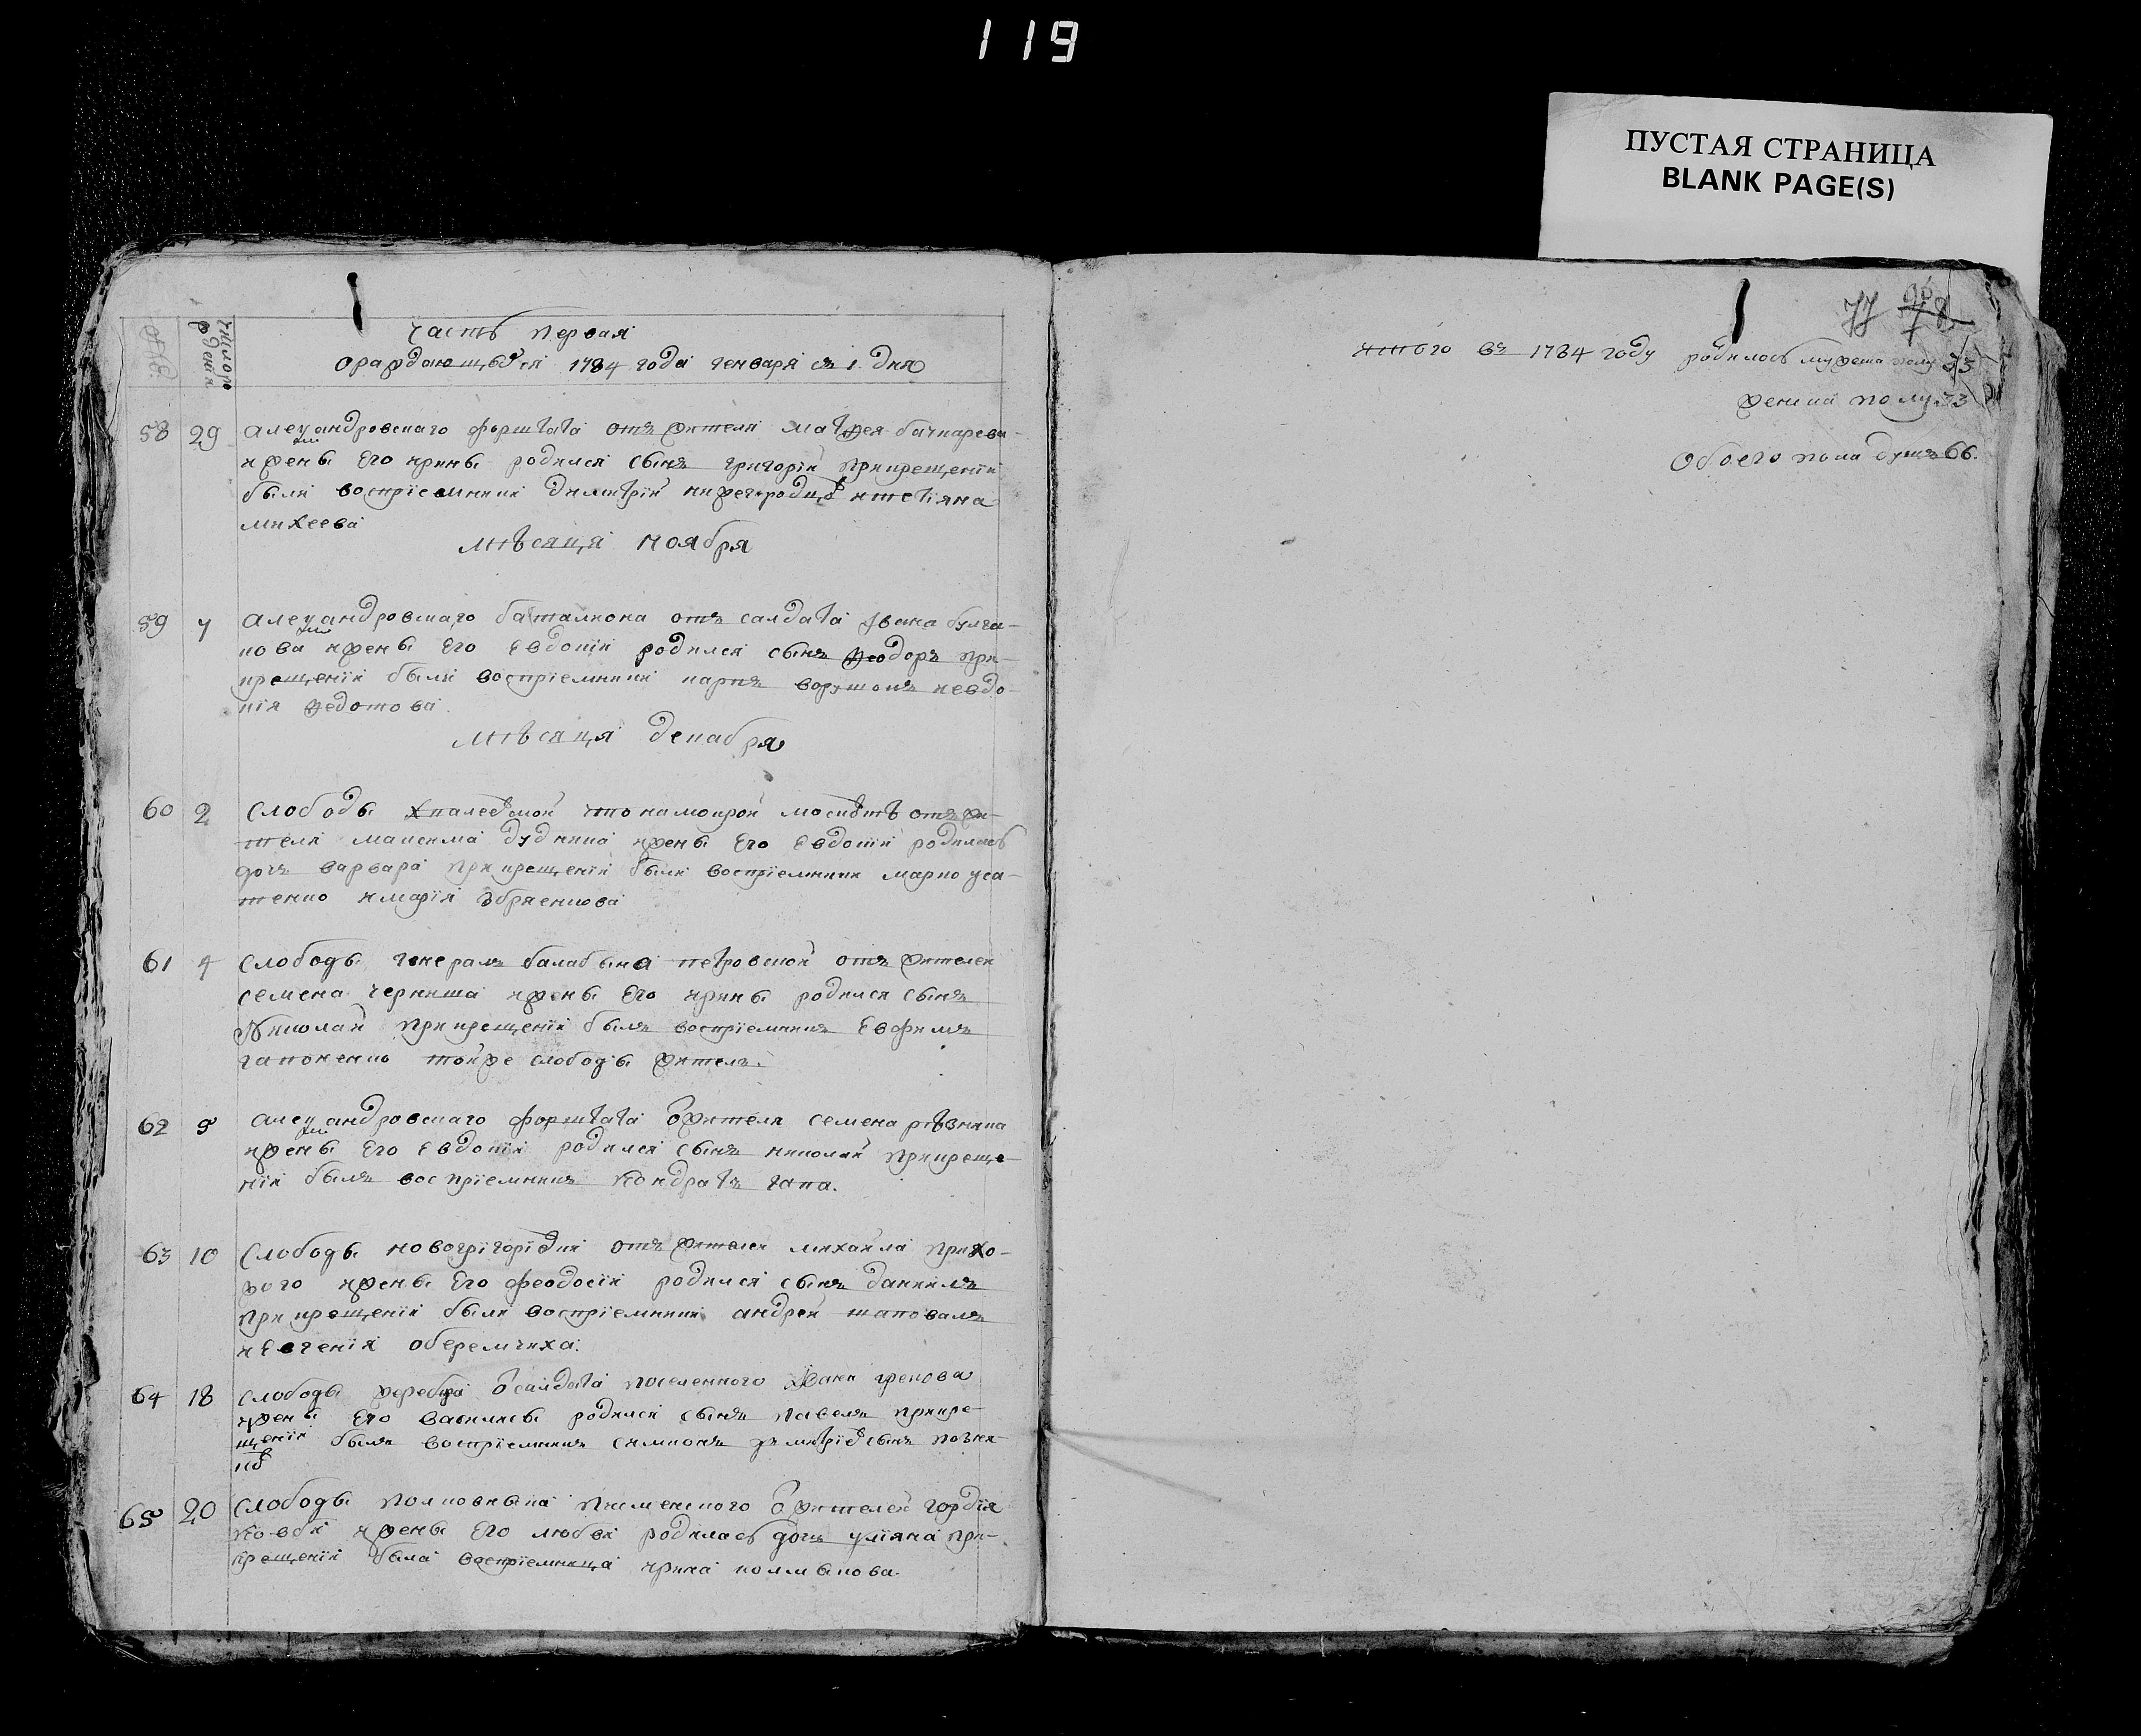 119
ПУСТАЯ СТРАНИЦА
BLANK PAGE(S)
часть первая
ораждающихся 1784 года генваря съ 1 дня
58 29 александровскаго форштата отъ жителя матфея
ижены его ирины родился сынъ григорїй прикрещенїи
были воспрїемники димитрїй итетїяна
михеева
мѣсяца ноября
59 александровскаго баталиона отъ салдата Ївана булга-
кова ижены его евдокїи родился сынъ феодоръ при-
крещенїи были воспрїемники карпъ иевдо-
кїя федотова
мѣсяца декабря
60 2 слободы чтонамокрой отъ жи-
теля максима дудника ижены его евдокїи родилась
дочь варвара прикрещенїи были воспрїемники марко уса-
тенко имарїя
61 4 слободы генералъ балабына петровской отъ жителя
семена черныша ижены его ирины родился сынъ
Николай прикрещенїи былъ воспрїемникъ евфимъ
гапоненко тойже слободы житель.
62 9 александровскаго форштата ѿжителя семена рѣзника
ижены его евдокїи родился сынъ николай прикреще-
нїи былъ воспрїемникъ кондратъ гапа.
63 10 слободы новогрїгорїевки отъ жителя михаила прихо-
жого ижены его феодосїи родился сынъ данїилъ
прикрещенїи были воспрїемники андрей шаповалъ
иевгенїя оберемчиха.
64 18 слободы жеребца ѿсалдата поселенного Ївана грекова
ижены его василисы родился сынъ павелъ прикре-
щенїи былъ воспрїемникъ симионъ димитрїевъ сынъ
65 20 слободы полковныка ѿжителей гордїя
ижены его любви родилась дочь улїяна при-
крещенїи была воспрїемница ирина колмыкова.
77 78
итого въ 1784 году родилось мужеска полу 33
женска полу 33
обоего пола душъ 66.